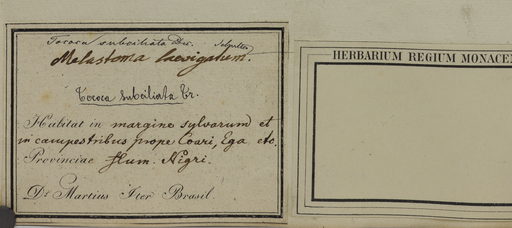 Tococa subciliata
Melastoma laevigatum.
Tococa subciliata Tr.
Habitat in margine sylvarum et
in campestribus prope Coari, Ega etc.
Provinciae flum. Nigri.
Dr Martius Iter Brasil.
HERBARIUM REGIUM MONACEN